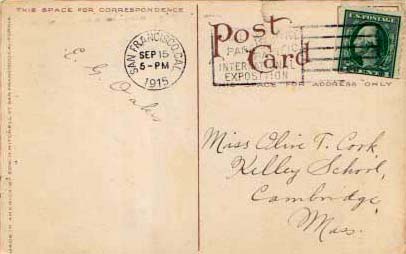 THIS SPACE FOR CORRESPONDENCE
Post
Card
SAN FRANCISCO, CAL.
SEP 15
5-PM
1915
INTERNATIONAL
EXPOSITION
U.S. POSTAGE
CENT
THIS SPACE FOR ADDRESS ONLY
E. G.
Miss Olive T. Cook
Kelley School,
Cambridge,
Mass.